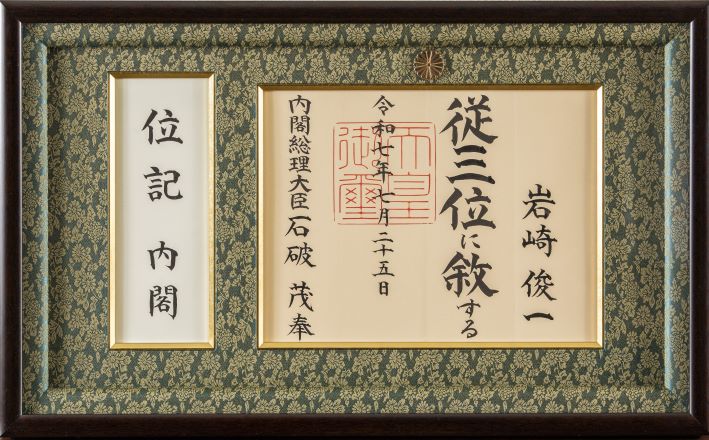 岩崎俊一
従三位に敘する
令和七年七月二十五日
天皇御璽
内閣総理大臣石破茂奉
位記 内閣